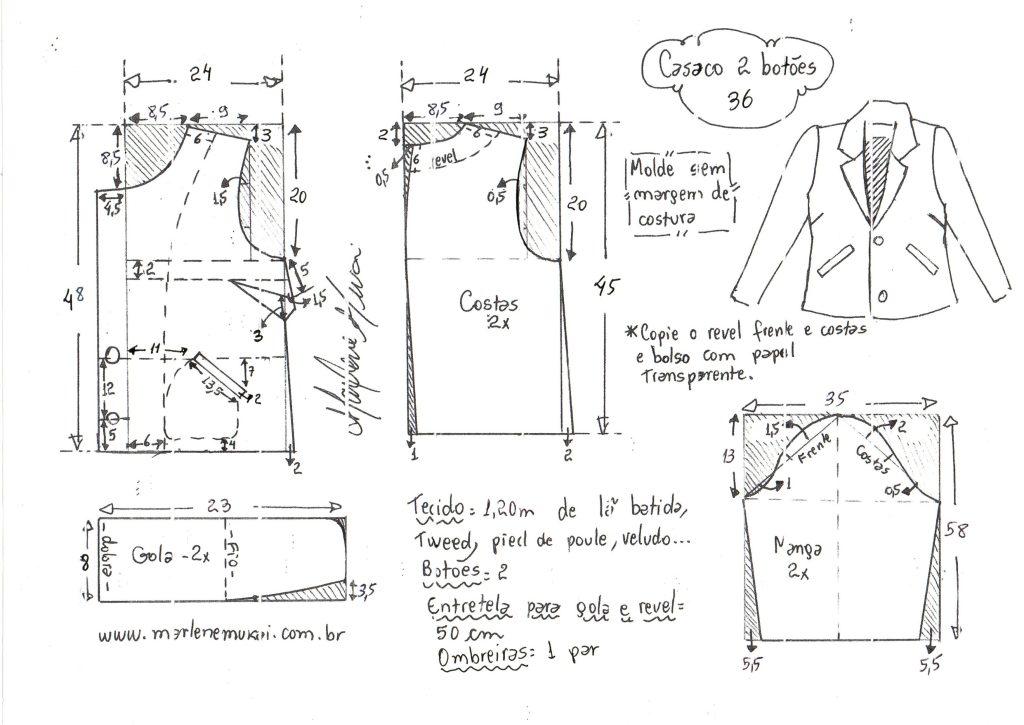 Casaco 2 botões
36
24
8,5
9
6
3
8,5
4,5
1,5
20
2
5
1,5
3
48
11
7
13,5
2
12
5
6
4
2
24
8,5
9
2
6
3
revel
0,5
0,5
20
45
Costas
2x
1
2
Molde sem
margem de
costura
*Copie o revel frente e costas
e bolso com papel
transparente.
35
1,5
2
13
Frente
Costas
1
0,5
58
Manga
2x
5,5
5,5
23
8
dobra
Gola - 2x
Fio
3,5
www.marlenemukai.com.br
Tecido = 1,20m de lã batida,
Tweed, pied de poule, veludo...
Botões = 2
Entretela para gola e revel =
50 cm
Ombreiras: 1 par